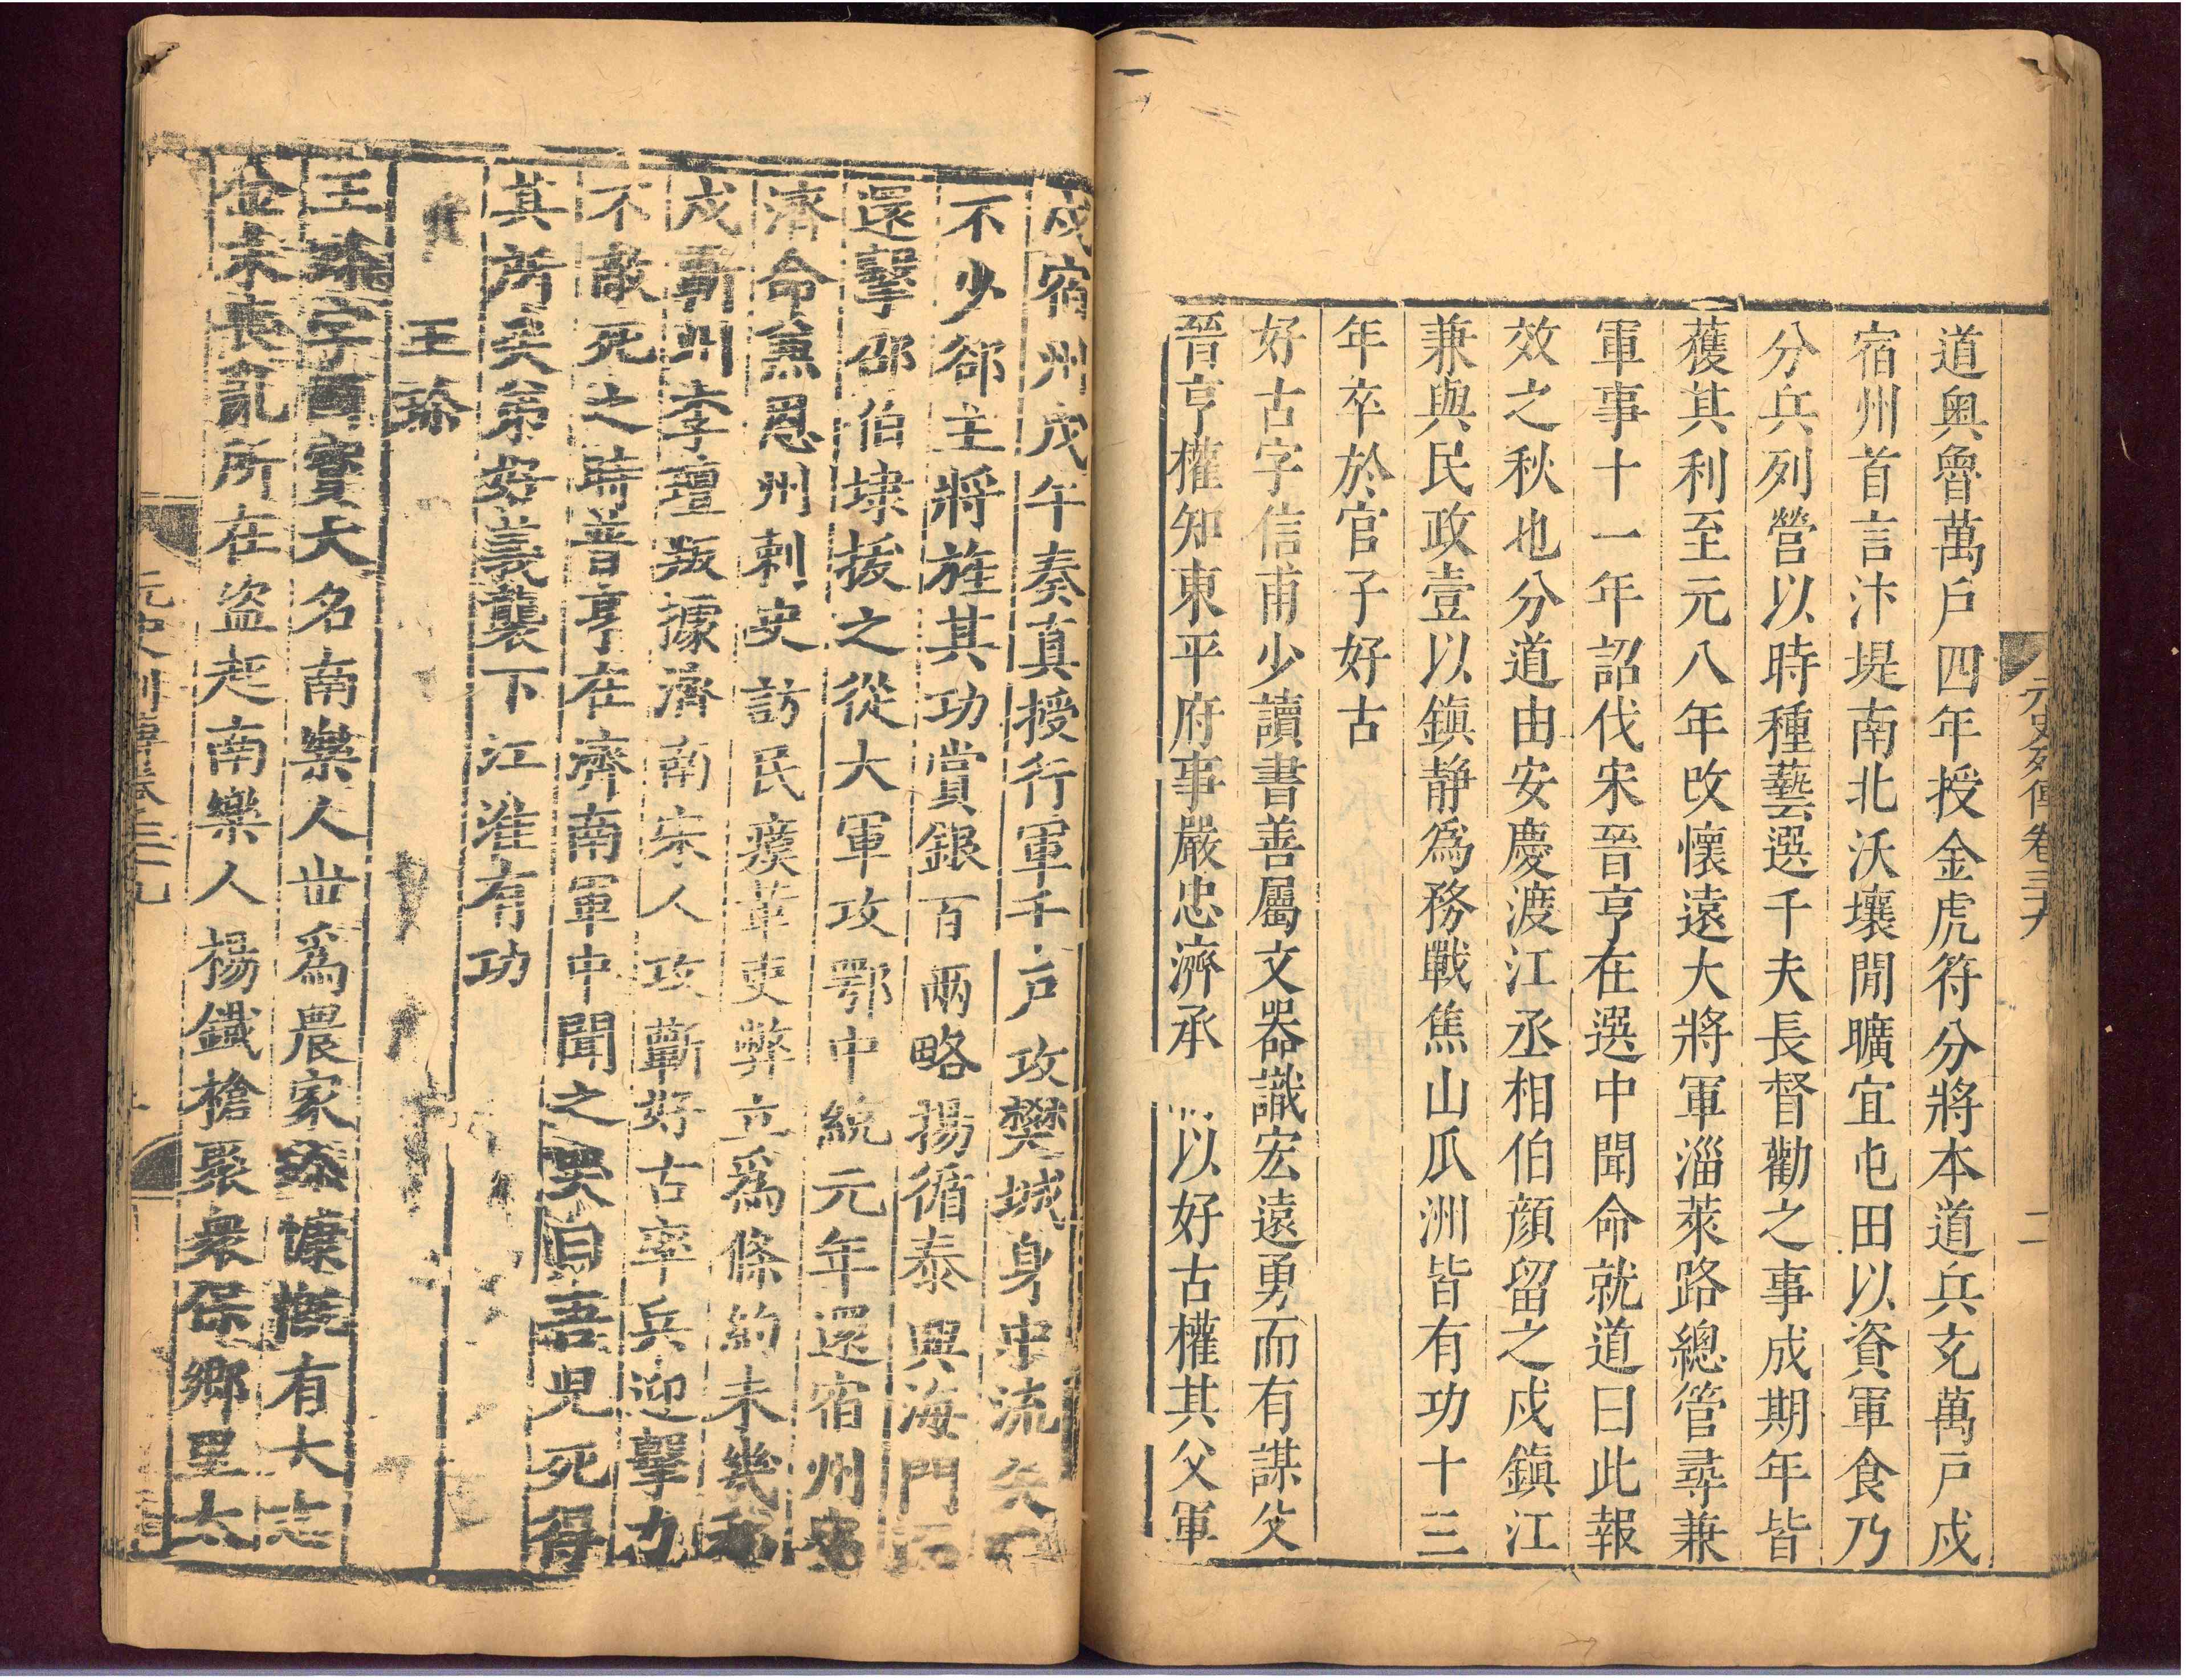 元史列傳卷三十九
二
道奧魯萬戶四年授金虎符分將本道兵充萬戶戍
宿州首言汴堤南北沃壤閒曠宜屯田以資軍食乃
分兵列營以時種藝選千夫長督勸之事成期年皆
獲其利至元八年改懷遠大將軍淄萊路總管尋兼
軍事十一年詔伐宋晉亨在選中聞命就道曰此報
效之秋也分道由安慶渡江丞相伯顏留之戍鎮江
兼與民政壹以鎮靜為務戰焦山瓜洲皆有功十三
年卒於官子好古
好古字信甫少讀書善屬文器識宏遠勇而有謀父
晉亨權知東平府事嚴忠濟承 以好古權其父軍
戍宿州戊午奏真授行軍千戶攻樊城身中流矢
不少郤主將旌其功賞銀百兩略揚循泰興海門
還擊邵伯埭拔之從大軍攻鄂中統元年還宿州
濟命兼恩州刺史訪民瘼革吏弊立為條約未幾
戍蘄州李璮叛據濟南宋人攻蘄好古率兵迎擊力
不敵死之時晉亨在濟南軍中聞之哭曰吾兒死得
其所矣弟好義襲下江淮有功
王珍
王珍字國寶大名南樂人世為農家珍慷慨有大志
金末喪亂所在盜起南樂人楊鐵槍聚衆保鄉里太
元史列傳卷三十九